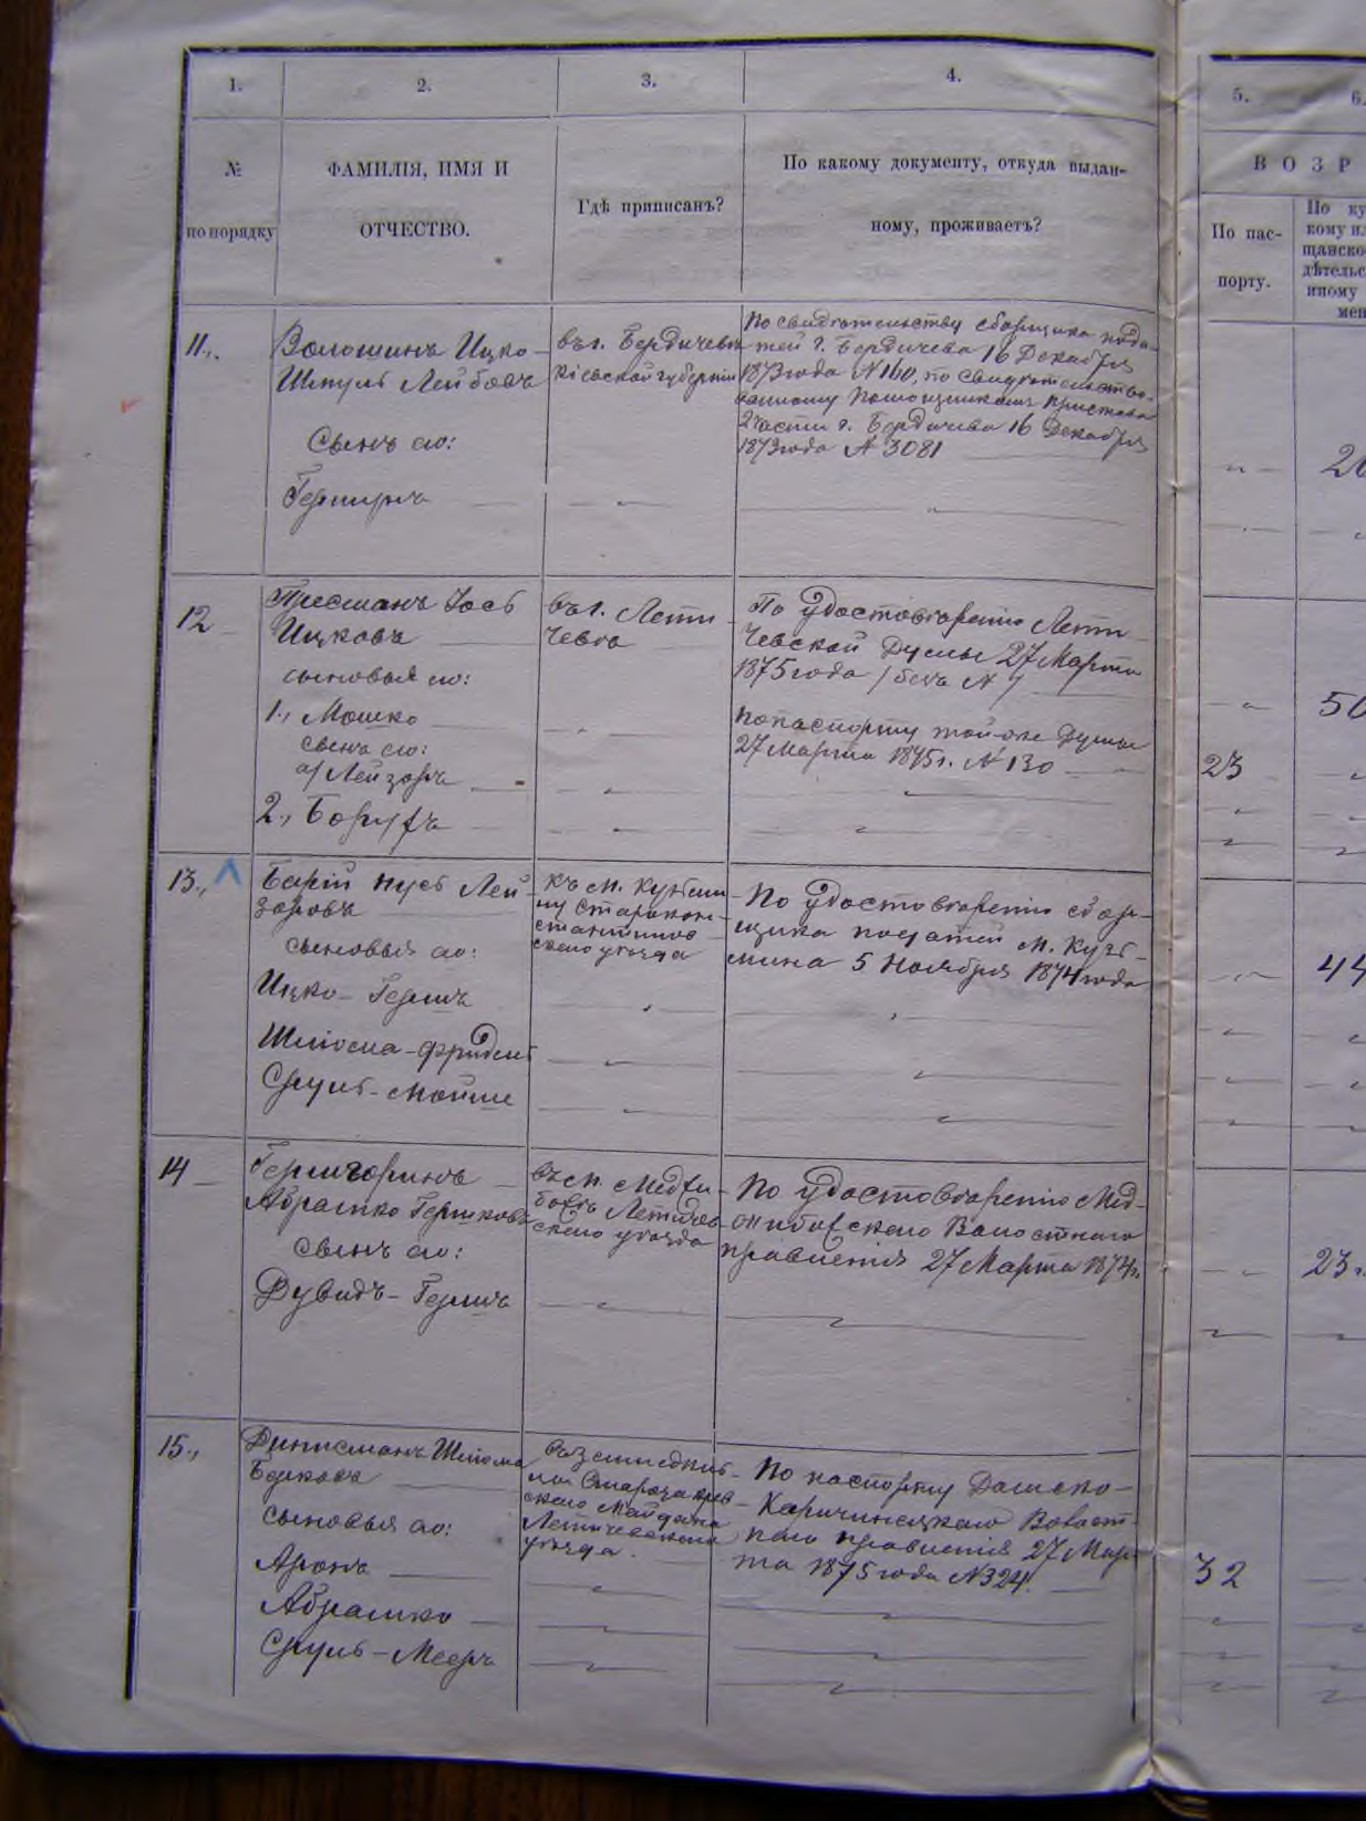 1.
2.
3.
4.
5.
6.
№
по порядку
ФАМИЛІЯ, ИМЯ И
ОТЧЕСТВО.
Гдѣ приписанъ?
По какому документу, откуда выдан-
ному, проживаетъ?
ВОЗР
По пас-
порту.
По ку
кому ил
щанско
дѣтельс
иному
мен
11.,
Волошинъ Ицко-
Шмуль Лейбовъ
Сынъ его:
Гершунъ
въ г. Бердичевѣ
Кіевской губерніи
По свидѣтельству сборщика пода-
тей г. Бердичева 16 Декабря
1873 года №
Помощникомъ Пристава
2 части г. Бердичева 16 Декабря
1873 года № 3081
12
Пресманъ Іось
Ицковъ
сыновья его:
1., Мошко
сынъ его:
а/ Лейзоръ
2., Борухъ
въ г. Лети-
чевѣ
По удостовѣренію Лети-
чевской Думы 27 Марта
1875 года /безъ №/
По паспорту той-же Думы
27 Марта 1875 г. № 130
23
50
13.,
Нусь Лей-
зоровъ
сыновья его:
Ицко-Гершъ
Шліома-Фридель
Сруль-Мойше
къ м. Кузьми-
ну Старокон-
стантинов-
скаго уѣзда
По удостовѣренію сбор-
щика податей м. Кузь-
мина 5 Ноября 1874 года
44
14
Гершгоринъ
Абрамко Гершковъ
сынъ его:
Дувидъ-Гершъ
въ м. Меджи-
божъ Летичев-
скаго уѣзда
По удостовѣренію Мед-
жибожскаго Волостнаго
правленія 27 Марта 1874 г.
23
15.,
Шліома
Берковъ
сыновья его:
Аронъ
Абрамко
Сруль-Мееръ
Майдана
Летичевскаго
уѣзда.
По паспорту Дашко-
Волост-
наго правленія 27 Мар-
та 1875 года № 324.
32